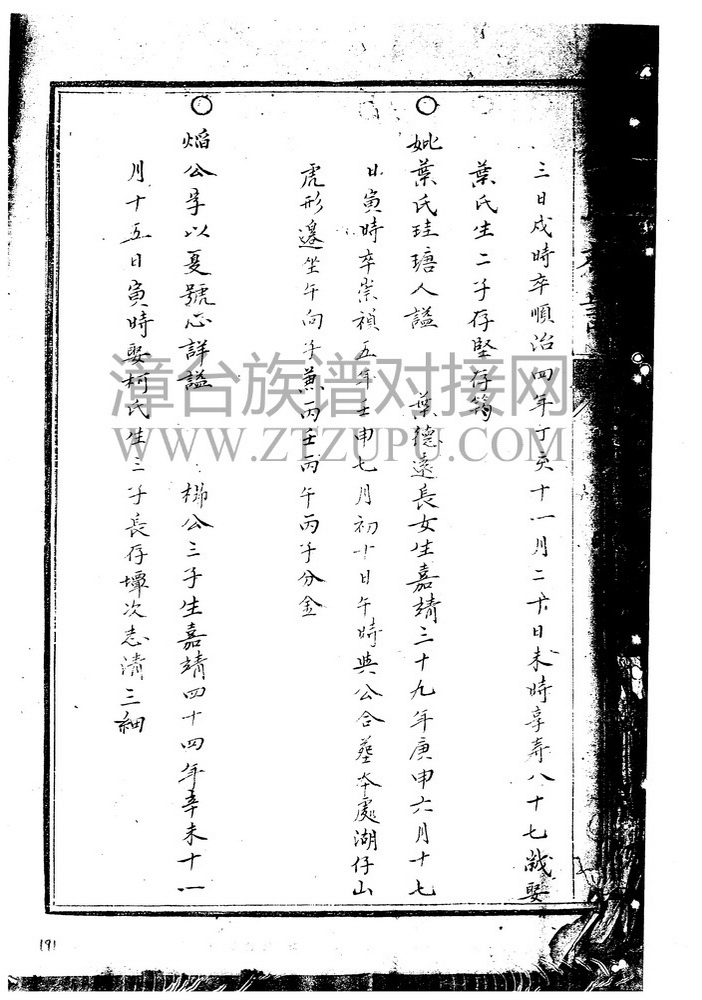 三日戍時卒順治四年丁亥十一月二十日未時享壽八十七歲娶
葉氏生二子存堅存筠
妣葉氏珪瑭人謚 葉德遠長女生嘉靖三十九年庚申六月十七
日寅時卒崇禎五年壬申七月初十日午時與公合墓本處湖仔山
虎形邊坐午向子兼丙壬丙午丙子分金
焰公字以夏號心詳謚 梯公三子生嘉靖四十四年辛未十一
月十五日寅時娶柯氏生三子長存壇次志清三細
漳台族谱对接网
WWW.ZTZUPU.COM
191